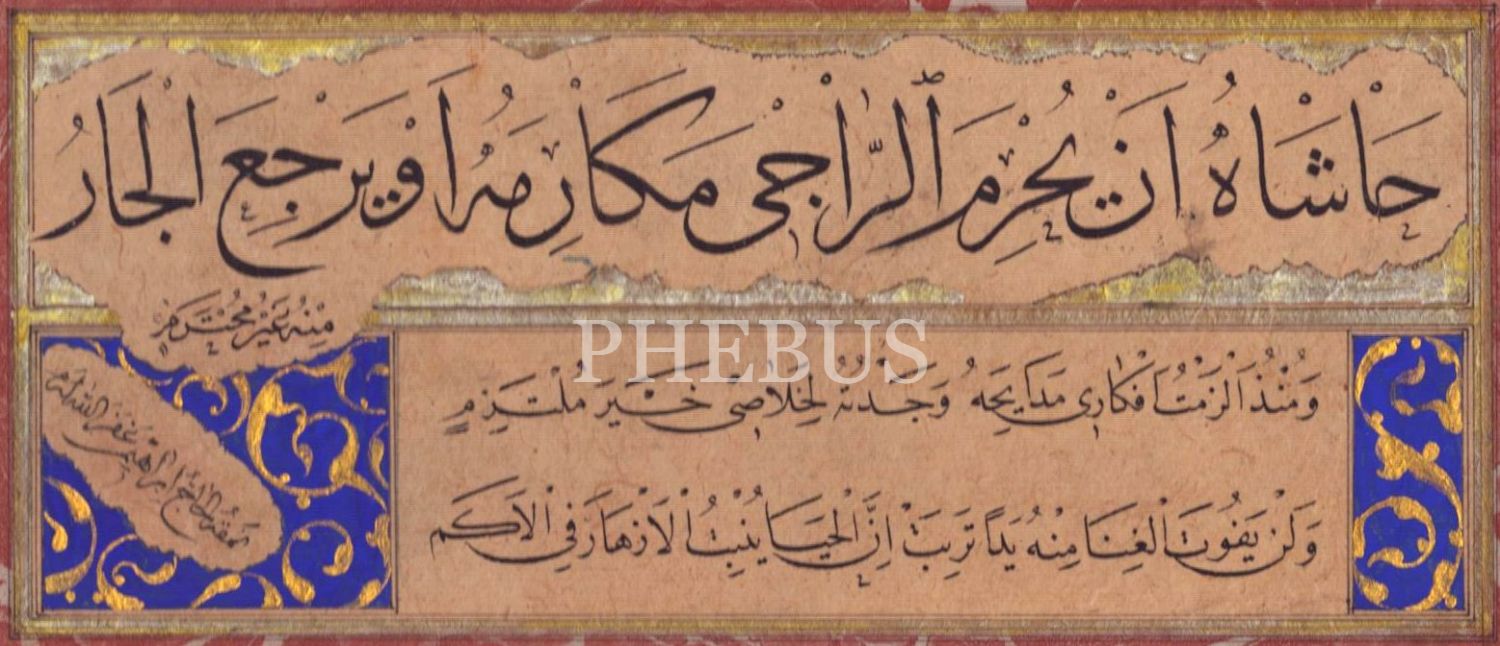 حَاشَاهُ اَنْ يُحْرِمَ ٱلرَّاجِى مَكَارِمَهُ اَوْ يَرْجِعَ الْجَارُ
مِنْهُ غَيْرَ مُحْتَرَمِ
PHEBUS
وَمُنْذُ اَلْزَمْتُ اَفْكَارِى مَدَايِحَهُ وَجَدْتُهُ لِخَلَاصِى خَيْرَ مُلْتَزِمِ
وَلَنْ يَفُوتَ الْغِنَا مِنْهُ يَدًا تَرِبَتْ اِنَّ الْحَيَا يُنْبِتُ الْاَزْهَارَ فِى الْاَكَمِ
ابراهيم غفر الله له